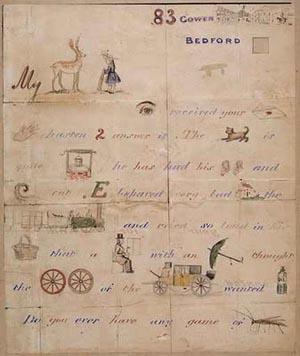 83 GOWER
BEDFORD
My
received your
hasten 2 answer it The is
quite he has had his and
cut E behaved very bad the
and roar'd so loud in his
that a with an thought
the of the wanted
Do you ever have any game or